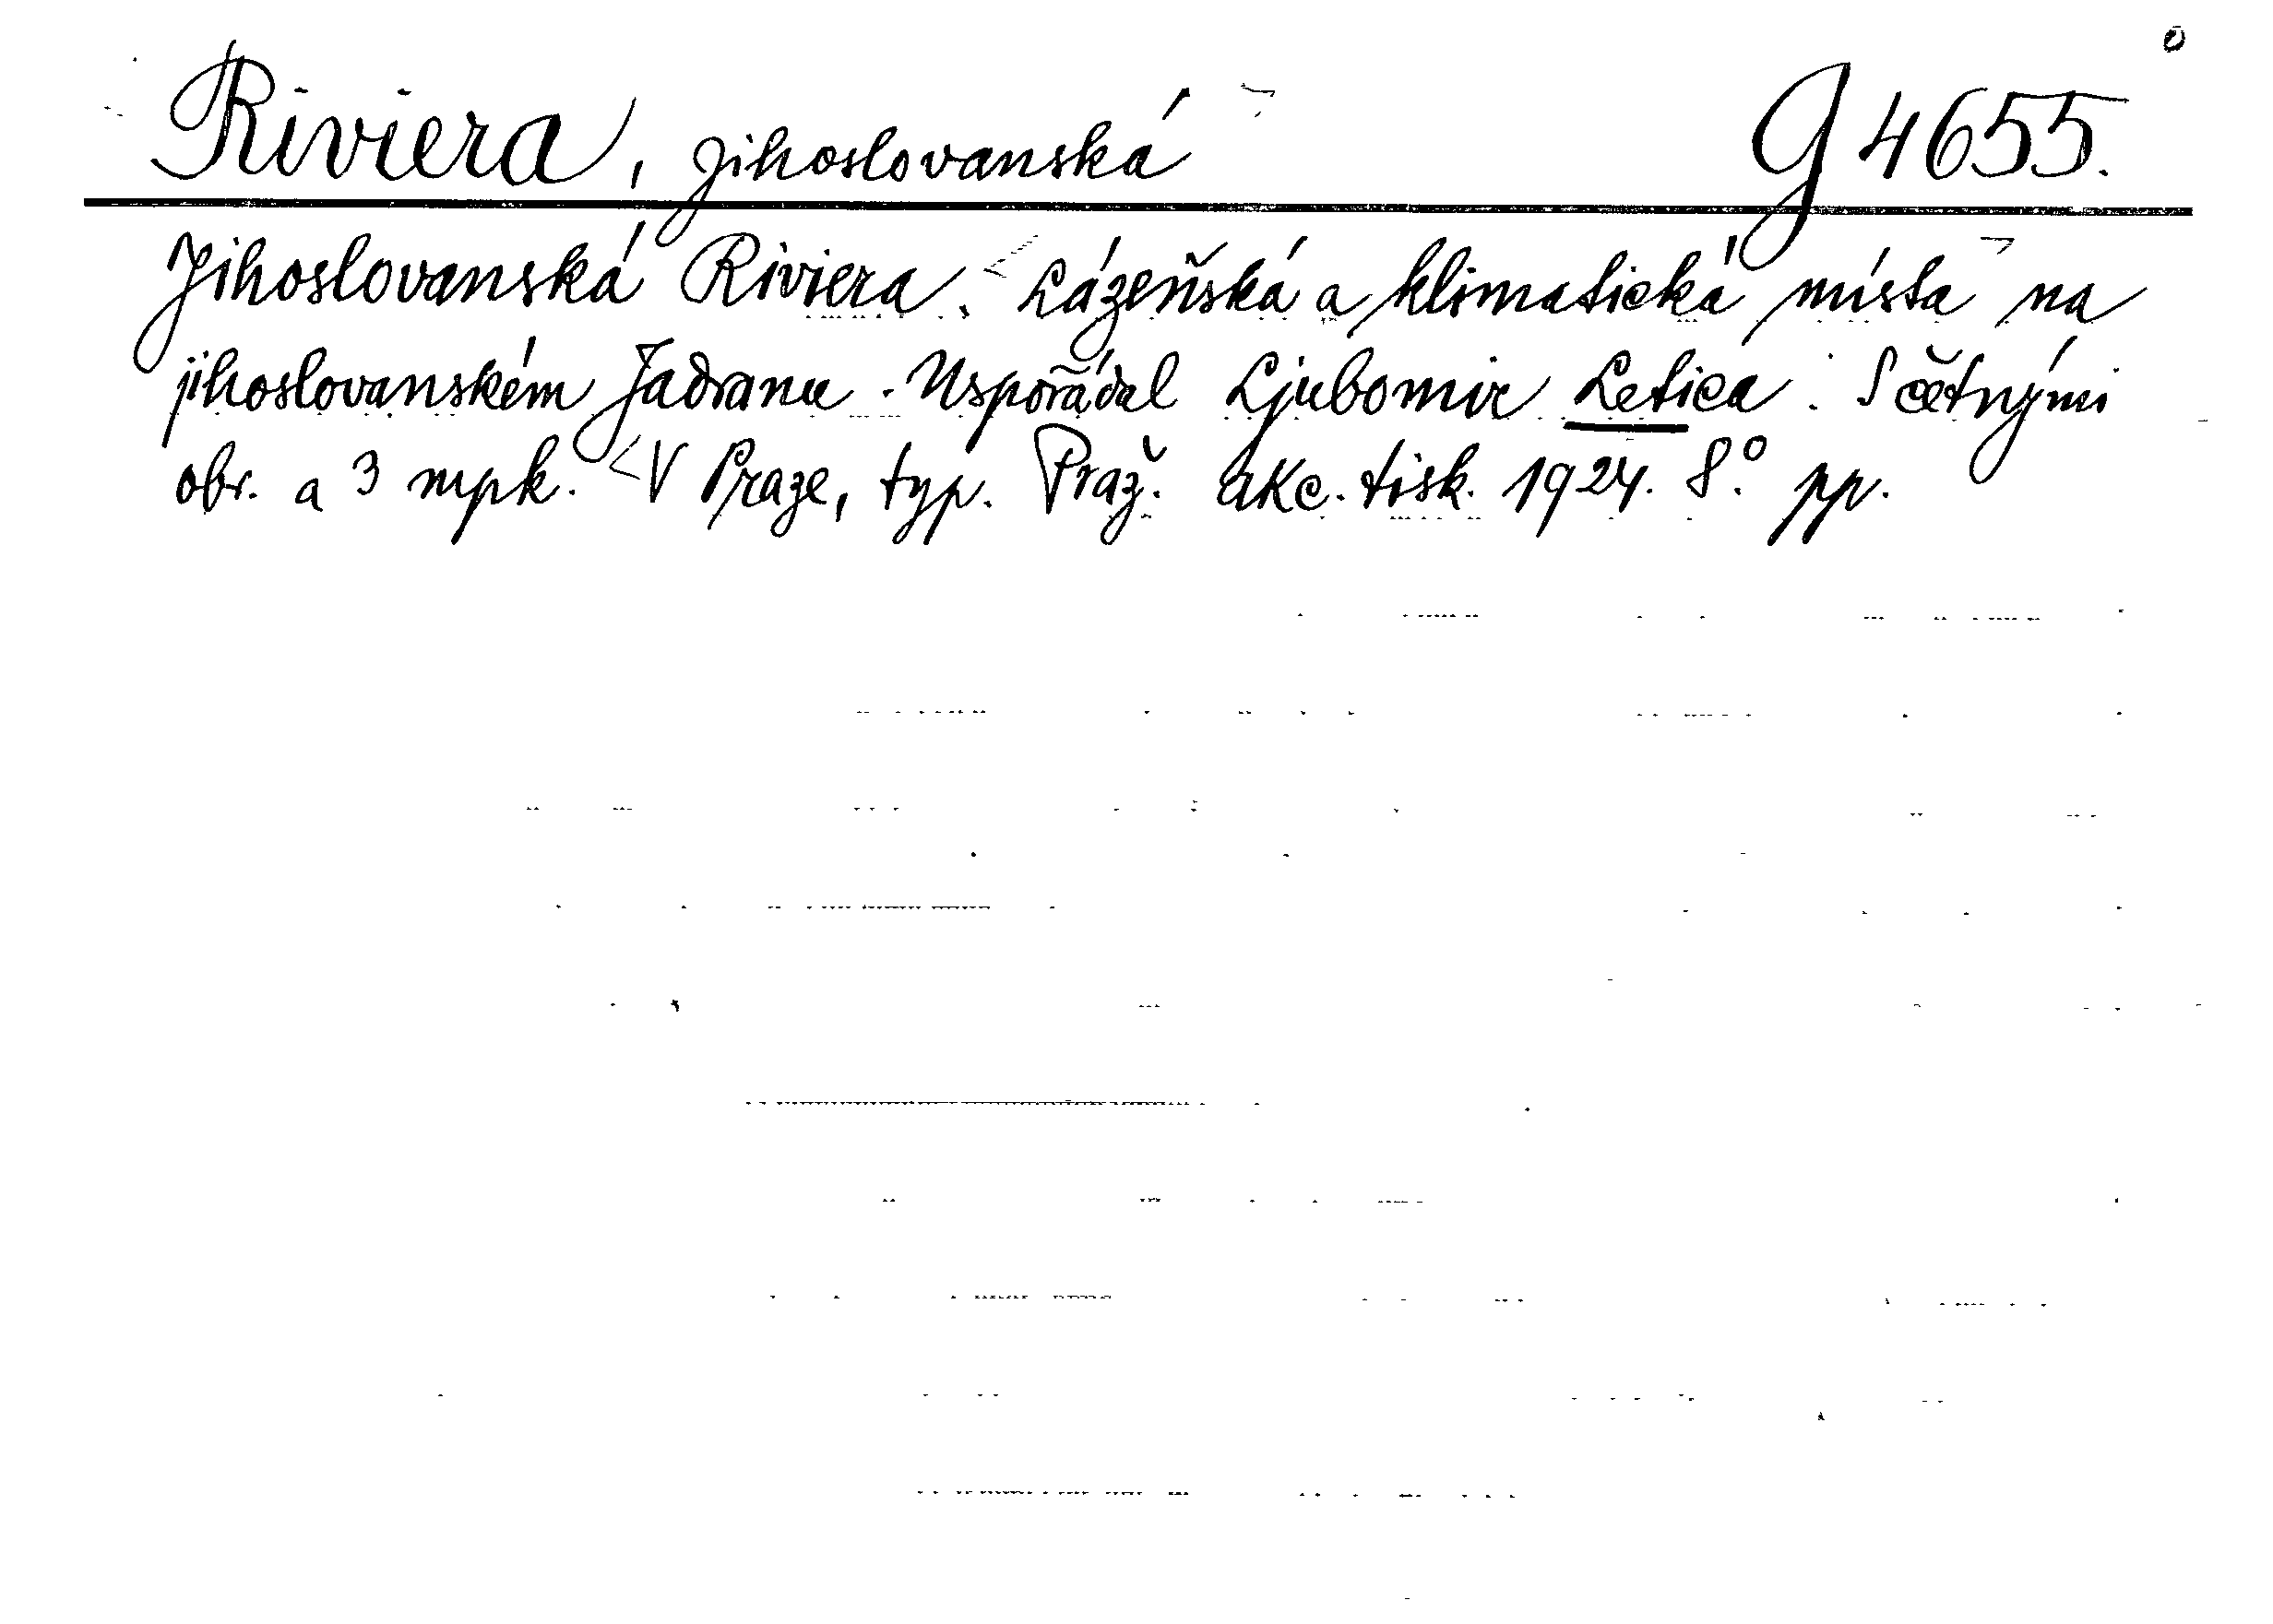 Riviera, jihoslovanská G 4655.
Jihoslovanská Riviera. Lázeňská a klimatická místa na
jihoslovanském Jadranu. Uspořádal Ljubomir Letica. S četnými
obr. a 3 mpk. V Praze, typ. Praž. akc. tisk. 1924. 8°. pp.